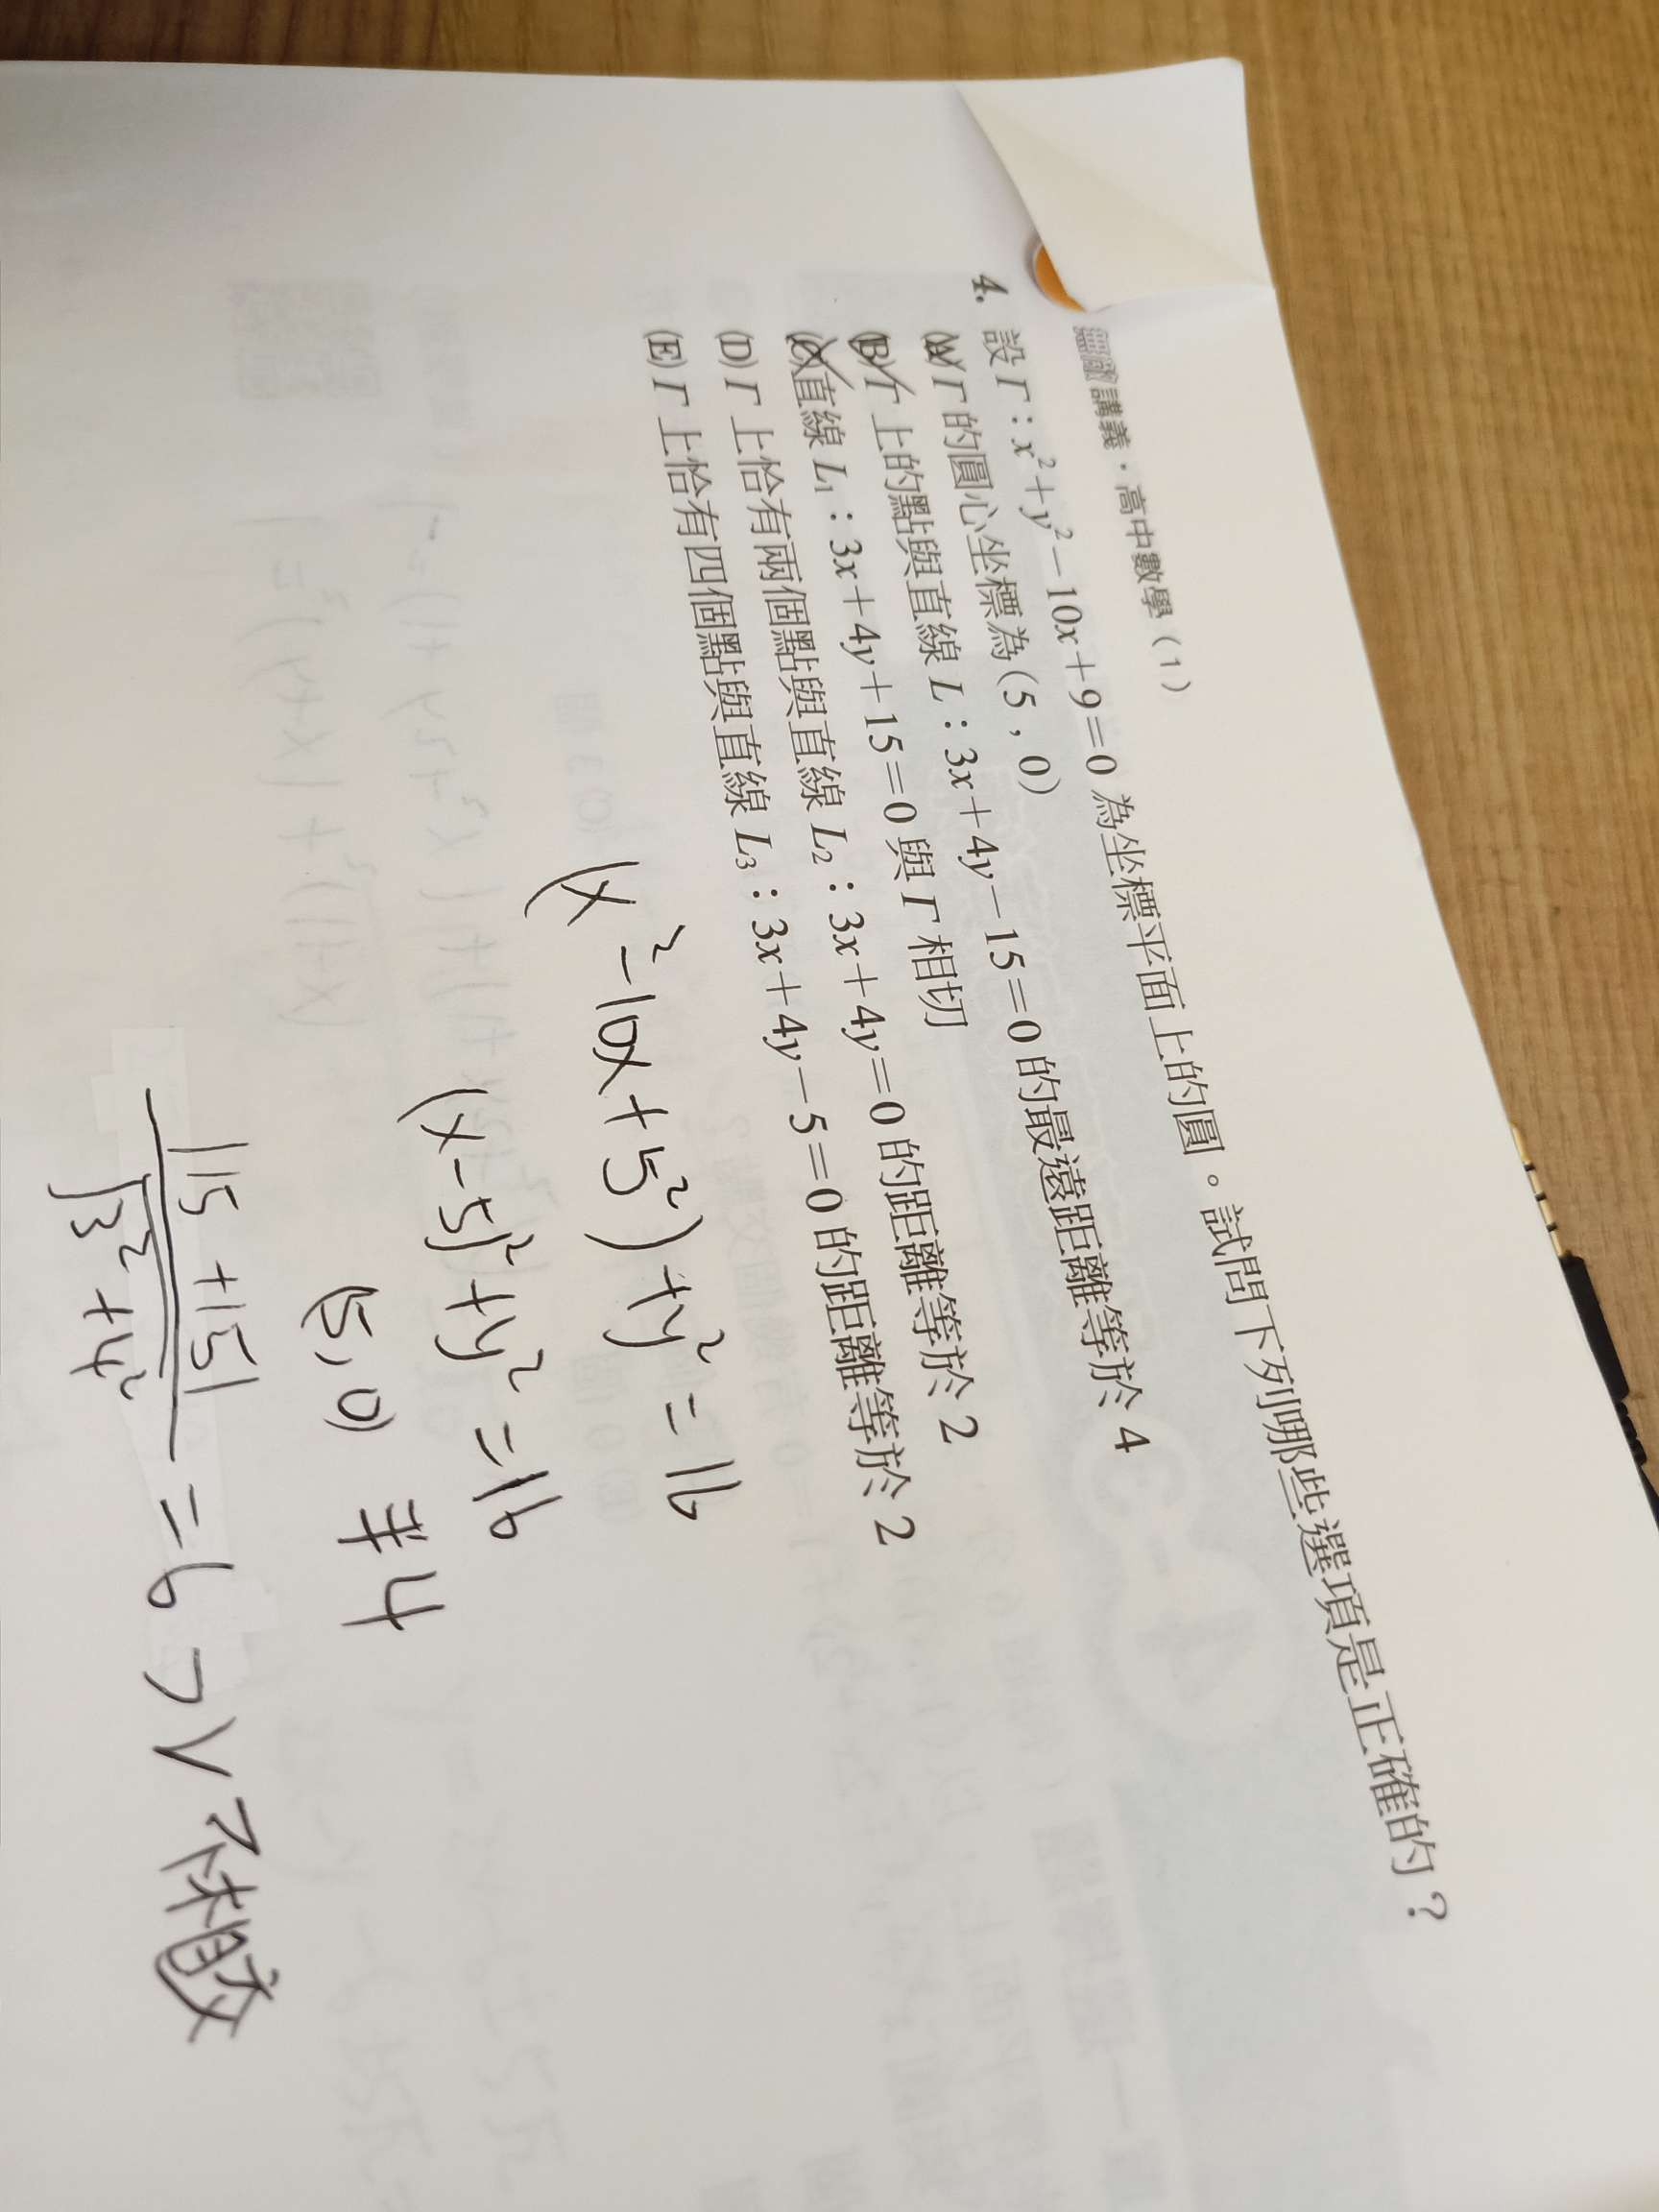 講義・高中數學（1）
4. 設Γ：x²＋y²－10x＋9＝0 為坐標平面上的圓。試問下列哪些選項是正確的？
(A) Γ的圓心坐標為(5，0)
(B) Γ上的點與直線 L：3x＋4y－15＝0 的最遠距離等於 4
(C) 直線 L₁：3x＋4y＋15＝0 與 Γ 相切
(D) Γ 上恰有兩個點與直線 L₂：3x＋4y＝0 的距離等於 2
(E) Γ 上恰有四個點與直線 L₃：3x＋4y－5＝0 的距離等於 2
(x²-10x+5²)+y²=16
(x-5)²+y²=16
(5,0) 半4
|15+15|
√3²+4² =6 > r 不相交